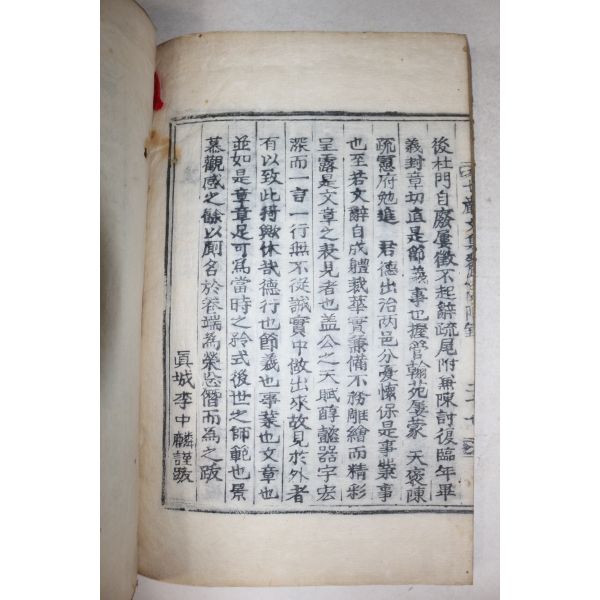 後杜門自廢屢徵不起辭疏尾附兼陳討復臨年畢
義封章切直是節義事也握管翰苑屢蒙 天褒陳
疏憲府勉進 君德出治兩邑分憂懷保是事業事
也至若文辭自成體裁華實兼備不務雕繪而精彩
呈露是文章之表見者也盖公之天賦醇懿器宇宏
深而一言一行無不從誠實中做出來故見於外者
有以致此猗歟休哉德行也節義也事業也文章也
並如是章章足可為當時之矜式後世之師範也景
慕觀感之餘以厠名於卷端為榮忘僭而為之跋
眞城李中麟謹跋